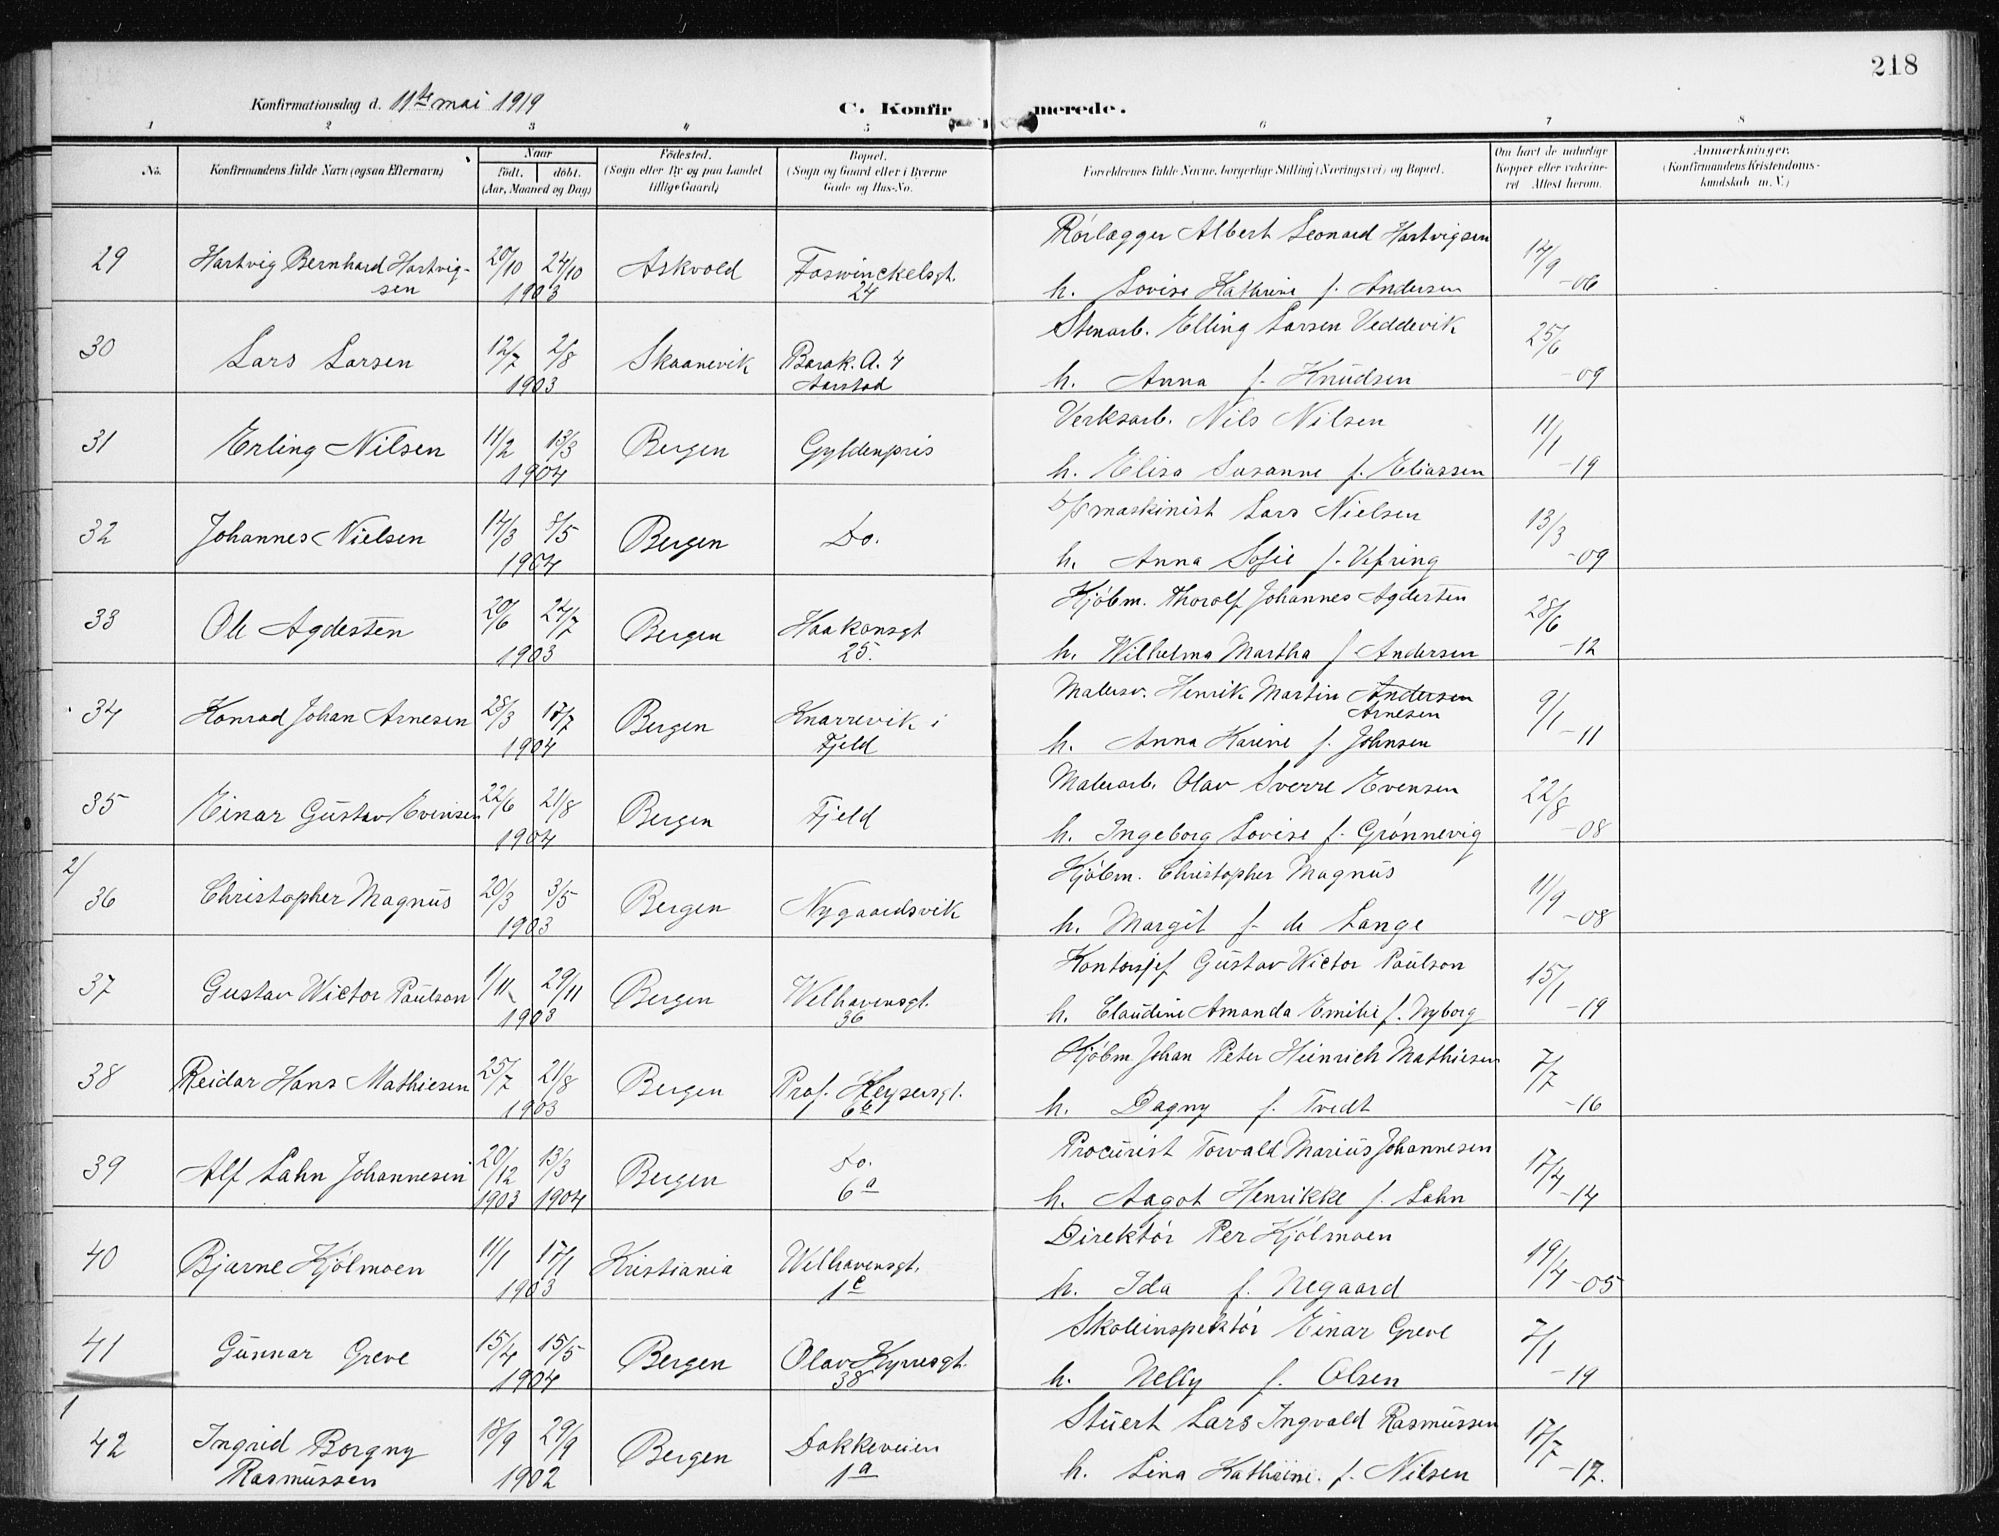 218
Konfirmationsdag d. 11te mai 1919 C. Konfirmerede.
1 2 3 4 5 6 7 8
No. Konfirmandens fulde Navn (ogsaa Efternavn) Naar født. døbt. (Aar, Maaned og Dag) Fødested. (Sogn eller By og paa Landet tillige Gaard) Bopæl. (Sogn og Gaard eller i Byerne Gade og Hus-No. Forældrenes fulde Navne, borgerlige Stilling (Næringsvei) og Bopæl. Om havt de naturlige Kopper eller vakcineret. Attest herom. Anmærkninger. (Konfirmandens Kristendomskundskab m. V.)
29 Hartvig Bernhard Hartvigsen 20/10 24/10 1903 Askvold Foswinckelsgt. 24 Rørlægger Albert Leonard Hartvigsen
h. Lovise Kathrine f. Andersen 14/9 -06
30 Lars Larsen 12/7 2/8 1903 Skaanevik Barak. A. 4 Aarstad Stenarb. Elling Larsen Veddevik
h. Anna f. Knudsen 25/6 -09
31 Erling Nilsen 11/2 13/3 1904 Bergen Gyldenpris Verksarb. Nils Nilsen
h. Elisa Susanne f. Eliassen 11/1 -19
32 Johannes Nielsen 14/3 8/5 1904 Bergen Do. maskinist Lars Nielsen
h. Anna Sofie f. Vefring 13/3 -09
33 Ole Agdesten 20/6 24/7 1903 Bergen Haakonsgt 25. Kjøbm. Thorolf Johannes Agdesten
h. Wilhelma Martha f. Andersen 28/6 -12
34 Konrad Johan Arnesen 28/3 17/7 1904 Bergen Knarrevik i Fjeld Malersv. Henrik Martin Andersen Arnesen
h. Anna Karine f. Johnsen 9/1 -11
35 Einar Gustav Evensen 22/6 21/8 1904 Bergen Fjeld Malerarb. Olav Sverre Evensen
h. Ingeborg Lovise f. Grønnevig 22/8 -08
2/
36 Christopher Magnus 20/3 3/5 1903 Bergen Nygaardsvik Kjøbm. Christopher Magnus
h. Margit f. de Lange 11/9 -08
37 Gustav Wictor Paulson 1/11 29/11 1903 Bergen Welhavensgt. 36 Kontorsjef Gustav Wictor Paulson
h. Claudine Amanda Emilie f. Nyborg 15/1 -19
38 Reidar Hans Mathiesen 25/7 21/8 1903 Bergen Prof. Keysersgt. 6b Kjøbm Johan Peter Heinrich Mathiesen
h. Dagny f. Tvedt 7/7 -16
39 Alf Lahn Johannesen 20/12 1903 13/3 1904 Bergen Do. 6a Procurist Torvald Marius Johannesen
h. Aagot Henrikke f. Lahn 17/4 -14
40 Bjarne Kjølmoen 11/1 17/1 1903 Kristiania Welhavensgt. 1c Direktør Per Kjølmoen
h. Ida f. Negaard 19/4 -05
41 Gunnar Greve 15/4 15/5 1904 Bergen Olav Kyrresgt. 38 Skoleinspektør Einar Greve
h. Nelly f. Olsen 7/1 -19
1
42 Ingrid Borgny Rasmussen 18/9 29/9 1902 Bergen Dokkeveien 1a Stuert Lars Ingvald Rasmussen
h. Lina Kathrine. f. Nilsen 17/7 -17.